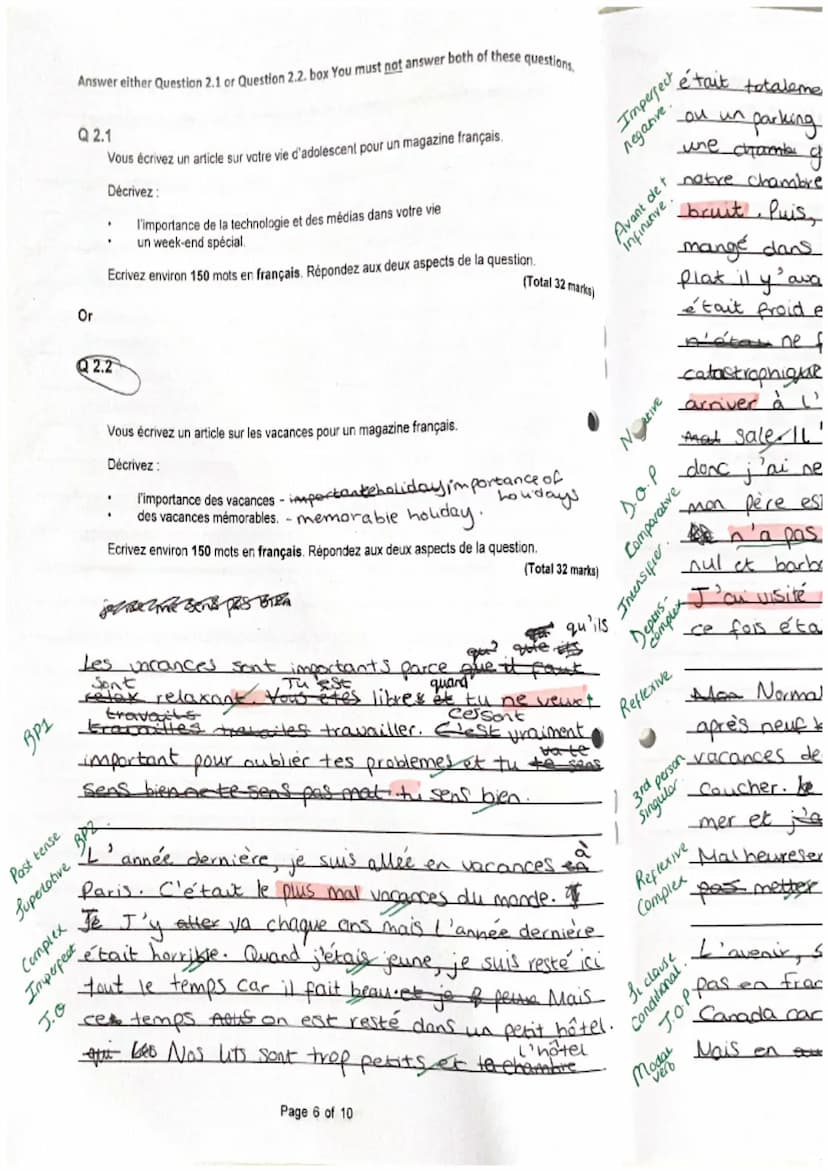 Answer either Question 2.1 or Question 2.2. box You must not answer both of these questions.
Q 2.1
Vous écrivez un article sur votre vie d'adolescent pour un magazine français.
Décrivez :
· l'importance de la technologie et des médias dans votre vie
· un week-end spécial.
Ecrivez environ 150 mots en français. Répondez aux deux aspects de la question.
(Total 32 marks)
Or
Q 2.2
Vous écrivez un article sur les vacances pour un magazine français.
Décrivez :
· l'importance des vacances - importante holiday, importance of holidays
· des vacances mémorables. - memorable holiday.
Ecrivez environ 150 mots en français. Répondez aux deux aspects de la question.
(Total 32 marks)
je me sens pas bien
qu'ils
Les vacances sont importants parce que il faut
sont Tu est quand
relax relaxant. Vous êtes libres et tu ne veux
travaits ces sont
travailles travailler. C'est vraiment
BP1
important pour oublier tes problemes et tu te sens
va te
sens bien tu sens bien.
Past tense BP2
Superlative
L'année dernière, je suis allée en vacances en à
Paris. C'était le plus mal vacances du monde.
Je J'y aller va chaque ans mais l'année dernière
Complex
Imperfect
était horrible. Quand j'étais jeune, je suis resté ici
J.O
tout le temps car il fait beau et je Mais
ces temps nous on est resté dans un petit hôtel.
Nos lits sont trop petits et la chambre l'hôtel
Page 6 of 10
Imperfect negative.
était totaleme
ou un parking
une chambe g
Avant de + infinitive.
notre chambre
bruit. Puis,
mangé dans
plat il y'ava
était froid e
n'étau ne f
catastrophique
Negative
arriver à l'
Mal sale. IL
D.O.P
donc j'ai ne
Comparative
mon père es
n'a pas
Intensifier.
nul et barb
Depuis - complex
J'ai visité
ce fois éta
Reflexive
Normal
après neuf
3rd person singular
vacances de
coucher. Le
mer et j'a
Reflexive
Complex
Malheureser
pas metter
Si clause
Conditional.
L'avenir, s
J.O.P
pas en Frac
Canada car
Modal verb
Mais en au